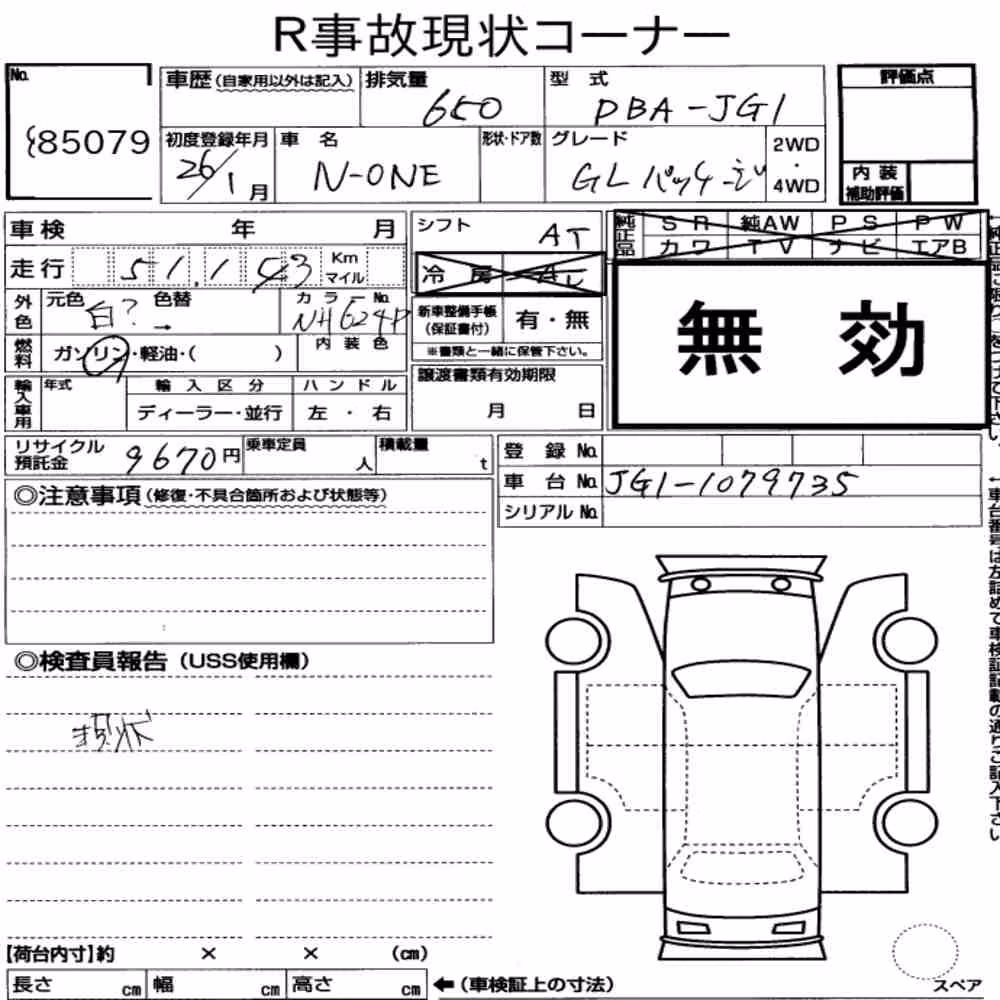 R事故現状コーナー
No.
85079
車歴(自家用以外は記入)
排気量
650
型式
DBA-JG1
評価点
初度登録年月
26/1月
車名
N-ONE
形状・ドア数
グレード
GLパッケージ
2WD
・
4WD
内装
補助評価
車検 年 月
シフト
AT
純正品
SR 純AW PS PW
カワ TV ナビ エアB
走行
51,1 3
Km
マイル
冷房
外色
元色 白?
色替
カラーNo.
NH624P
新車整備手帳
(保証書付)
有・無
※書類と一緒に保管下さい。
無効
燃料
ガソリン・軽油・( )
内装色
輸入車用
年式
輸入区分
ハンドル
ディーラー・並行
左・右
譲渡書類有効期限
月 日
リサイクル
預託金
9670円
乗車定員
人
積載量
t
登録No.
車台No. JG1-1079735
シリアルNo.
◎注意事項(修復・不具合箇所および状態等)
◎検査員報告(USS使用欄)
現状
【荷台内寸】約 × × (cm)
長さ cm 幅 cm 高さ cm
←(車検証上の寸法)
スペア
←車台番号は左詰めで車検証記載の通りご記入下さい